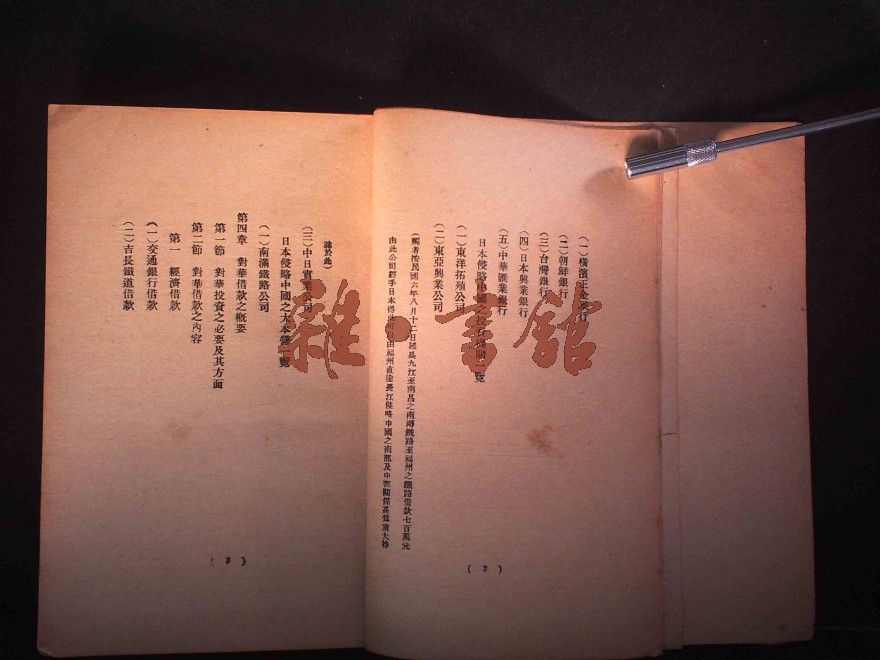 (一)橫濱正金銀行
(二)朝鮮銀行
(三)台灣銀行
(四)日本興業銀行
(五)中華匯業銀行
日本侵略中國之投資機關一覽
(一)東洋拓殖公司
(二)東亞興業公司
(輯者按民國六年八月十二日延長九江至南昌之南潯鐵路至福州之鐵路借款七百萬元
由此公司經手日本得此可自由福州直達長江侵略中國之南部及中部關係甚為重大特
(2)
誌於此)
(三)中日實業公司
日本侵略中國之大本營一覽
(一)南滿鐵路公司
第四章 對華借款之概要
第一節 對華投資之必要及其方面
第二節 對華借款之內容
第一 經濟借款
(一)交通銀行借款
(二)吉長鐵道借款
(3)
雜·書館